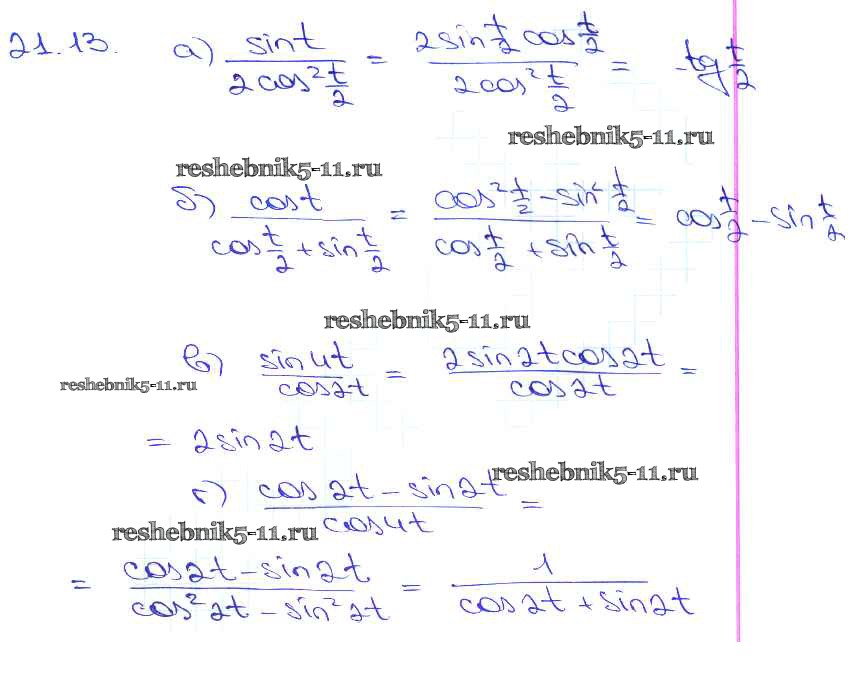 21.13. а) sin t / 2cos² t/2 = 2sin t/2 cos t/2 / 2cos² t/2 = tg t/2
reshebnik5-11.ru
reshebnik5-11.ru
б) cos t / cos t/2 + sin t/2 = cos² t/2 - sin² t/2 / cos t/2 + sin t/2 = cos t/2 - sin t/2
reshebnik5-11.ru
в) sin 4t / cos 2t = 2 sin 2t cos 2t / cos 2t =
reshebnik5-11.ru
= 2 sin 2t
reshebnik5-11.ru
г) cos 2t - sin 2t / cos 4t =
reshebnik5-11.ru
= cos 2t - sin 2t / cos² 2t - sin² 2t = 1 / cos 2t + sin 2t